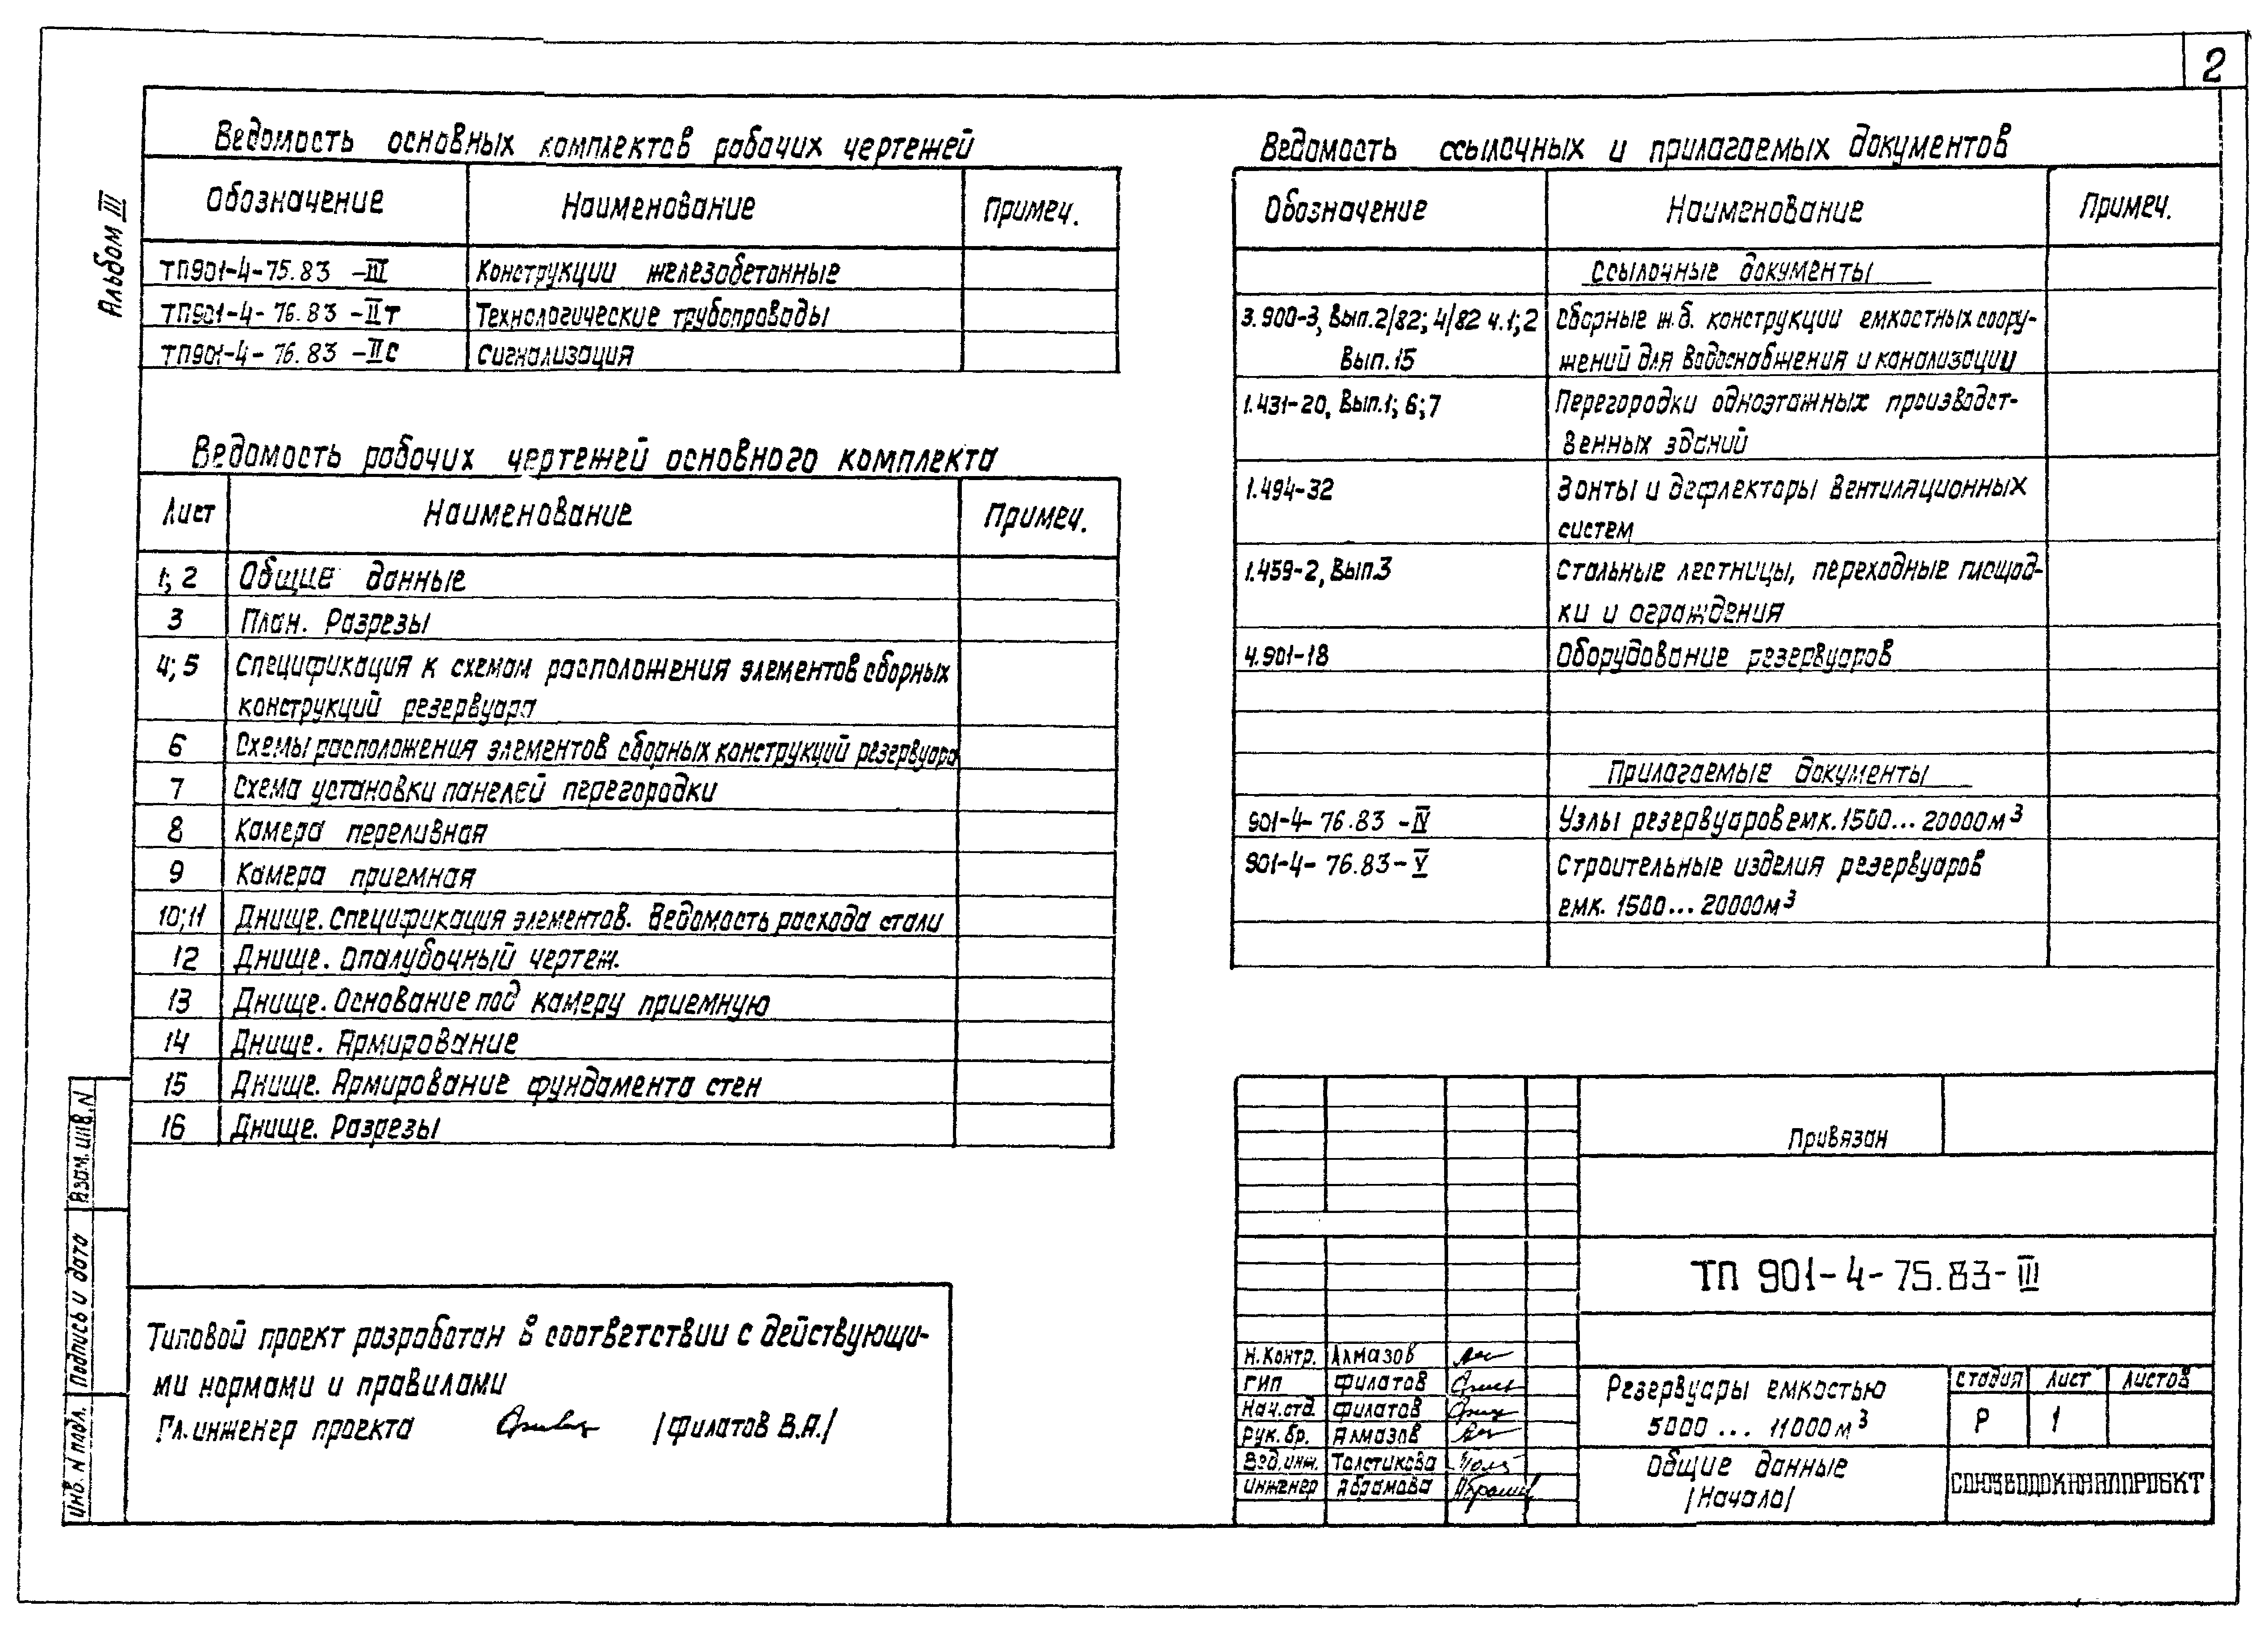 2
Альбом III
Ведомость основных комплектов рабочих чертежей
Обозначение Наименование Примеч.
ТП901-4-75.83 -III Конструкции железобетонные
ТП901-4-76.83 -IIТ Технологические трубопроводы
ТП901-4-76.83 -IIС Сигнализация
Ведомость рабочих чертежей основного комплекта
Лист Наименование Примеч.
1; 2 Общие данные
3 План. Разрезы
4; 5 Спецификация к схемам расположения элементов сборных
конструкций резервуара
6 Схемы расположения элементов сборных конструкций резервуара
7 Схема установки панелей перегородки
8 Камера переливная
9 Камера приемная
10; 11 Днище. Спецификация элементов. Ведомость расхода стали
12 Днище. Опалубочный чертеж.
13 Днище. Основание под камеру приемную
14 Днище. Армирование
15 Днище. Армирование фундамента стен
16 Днище. Разрезы
Типовой проект разработан в соответствии с действующи-
ми нормами и правилами
Гл. инженер проекта /Филатов В.А./
Взам. инв. N
Подпись и дата
Инв. N подл.
Ведомость ссылочных и прилагаемых документов
Обозначение Наименование Примеч.
Ссылочные документы
3.900-3, Вып.2/82; 4/82 ч.1; 2 Сборные ж.б. конструкции емкостных соору-
Вып. 15 жений для водоснабжения и канализации
1.431-20, Вып.1; 6; 7 Перегородки одноэтажных производст-
венных зданий
1.494-32 Зонты и дефлекторы вентиляционных
систем
1.459-2, Вып.3 Стальные лестницы, переходные площад-
ки и ограждения
4.901-18 Оборудование резервуаров
Прилагаемые документы
901-4-76.83 -IV Узлы резервуаров емк. 1500... 20000м³
901-4-76.83-V Строительные изделия резервуаров
емк. 1500... 20000м³
Привязан
ТП 901-4-75.83-III
Н.Контр. Алмазов
ГИП Филатов
Нач.отд. Филатов
Рук. бр. Алмазов
Вед.инж. Толстикова
Инженер Абрамова
Резервуары емкостью
5000 ... 11000м³
Стадия Лист Листов
Р 1
Общие данные
/Начало/
СОЮЗВОДОКАНАЛПРОЕКТ